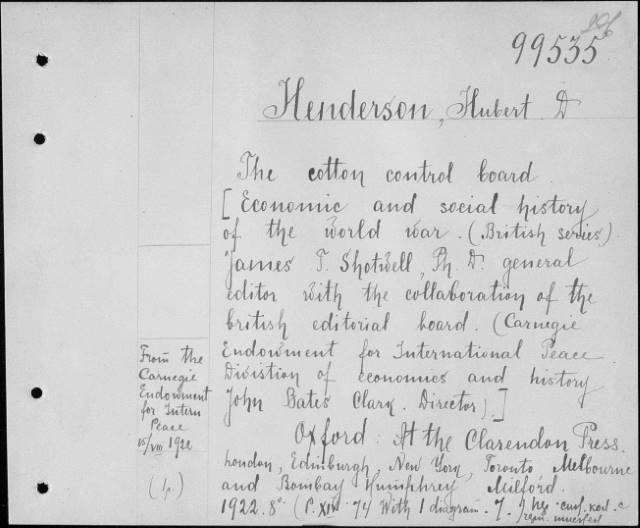 99535
Henderson, Hubert D
The cotton control board
[Economic and social history
of the world war. (British series)
James T. Shotwell, Ph. D. general
editor with the collaboration of the
british editorial board. (Carnegie
Endowment for International Peace.
Divistion of economics and history
John Bates Clarq. Director).]
Oxford: At the Clarendon Press.
London, Edinburgh, New York, Toronto Melbourne
and Bombay Humphrey Milford.
1922. 8° (P. XIV 74 With 1 diagram.
From the
Carnegie
Endowment
for Intern
Peace
15/VIII 1922
(1p.)